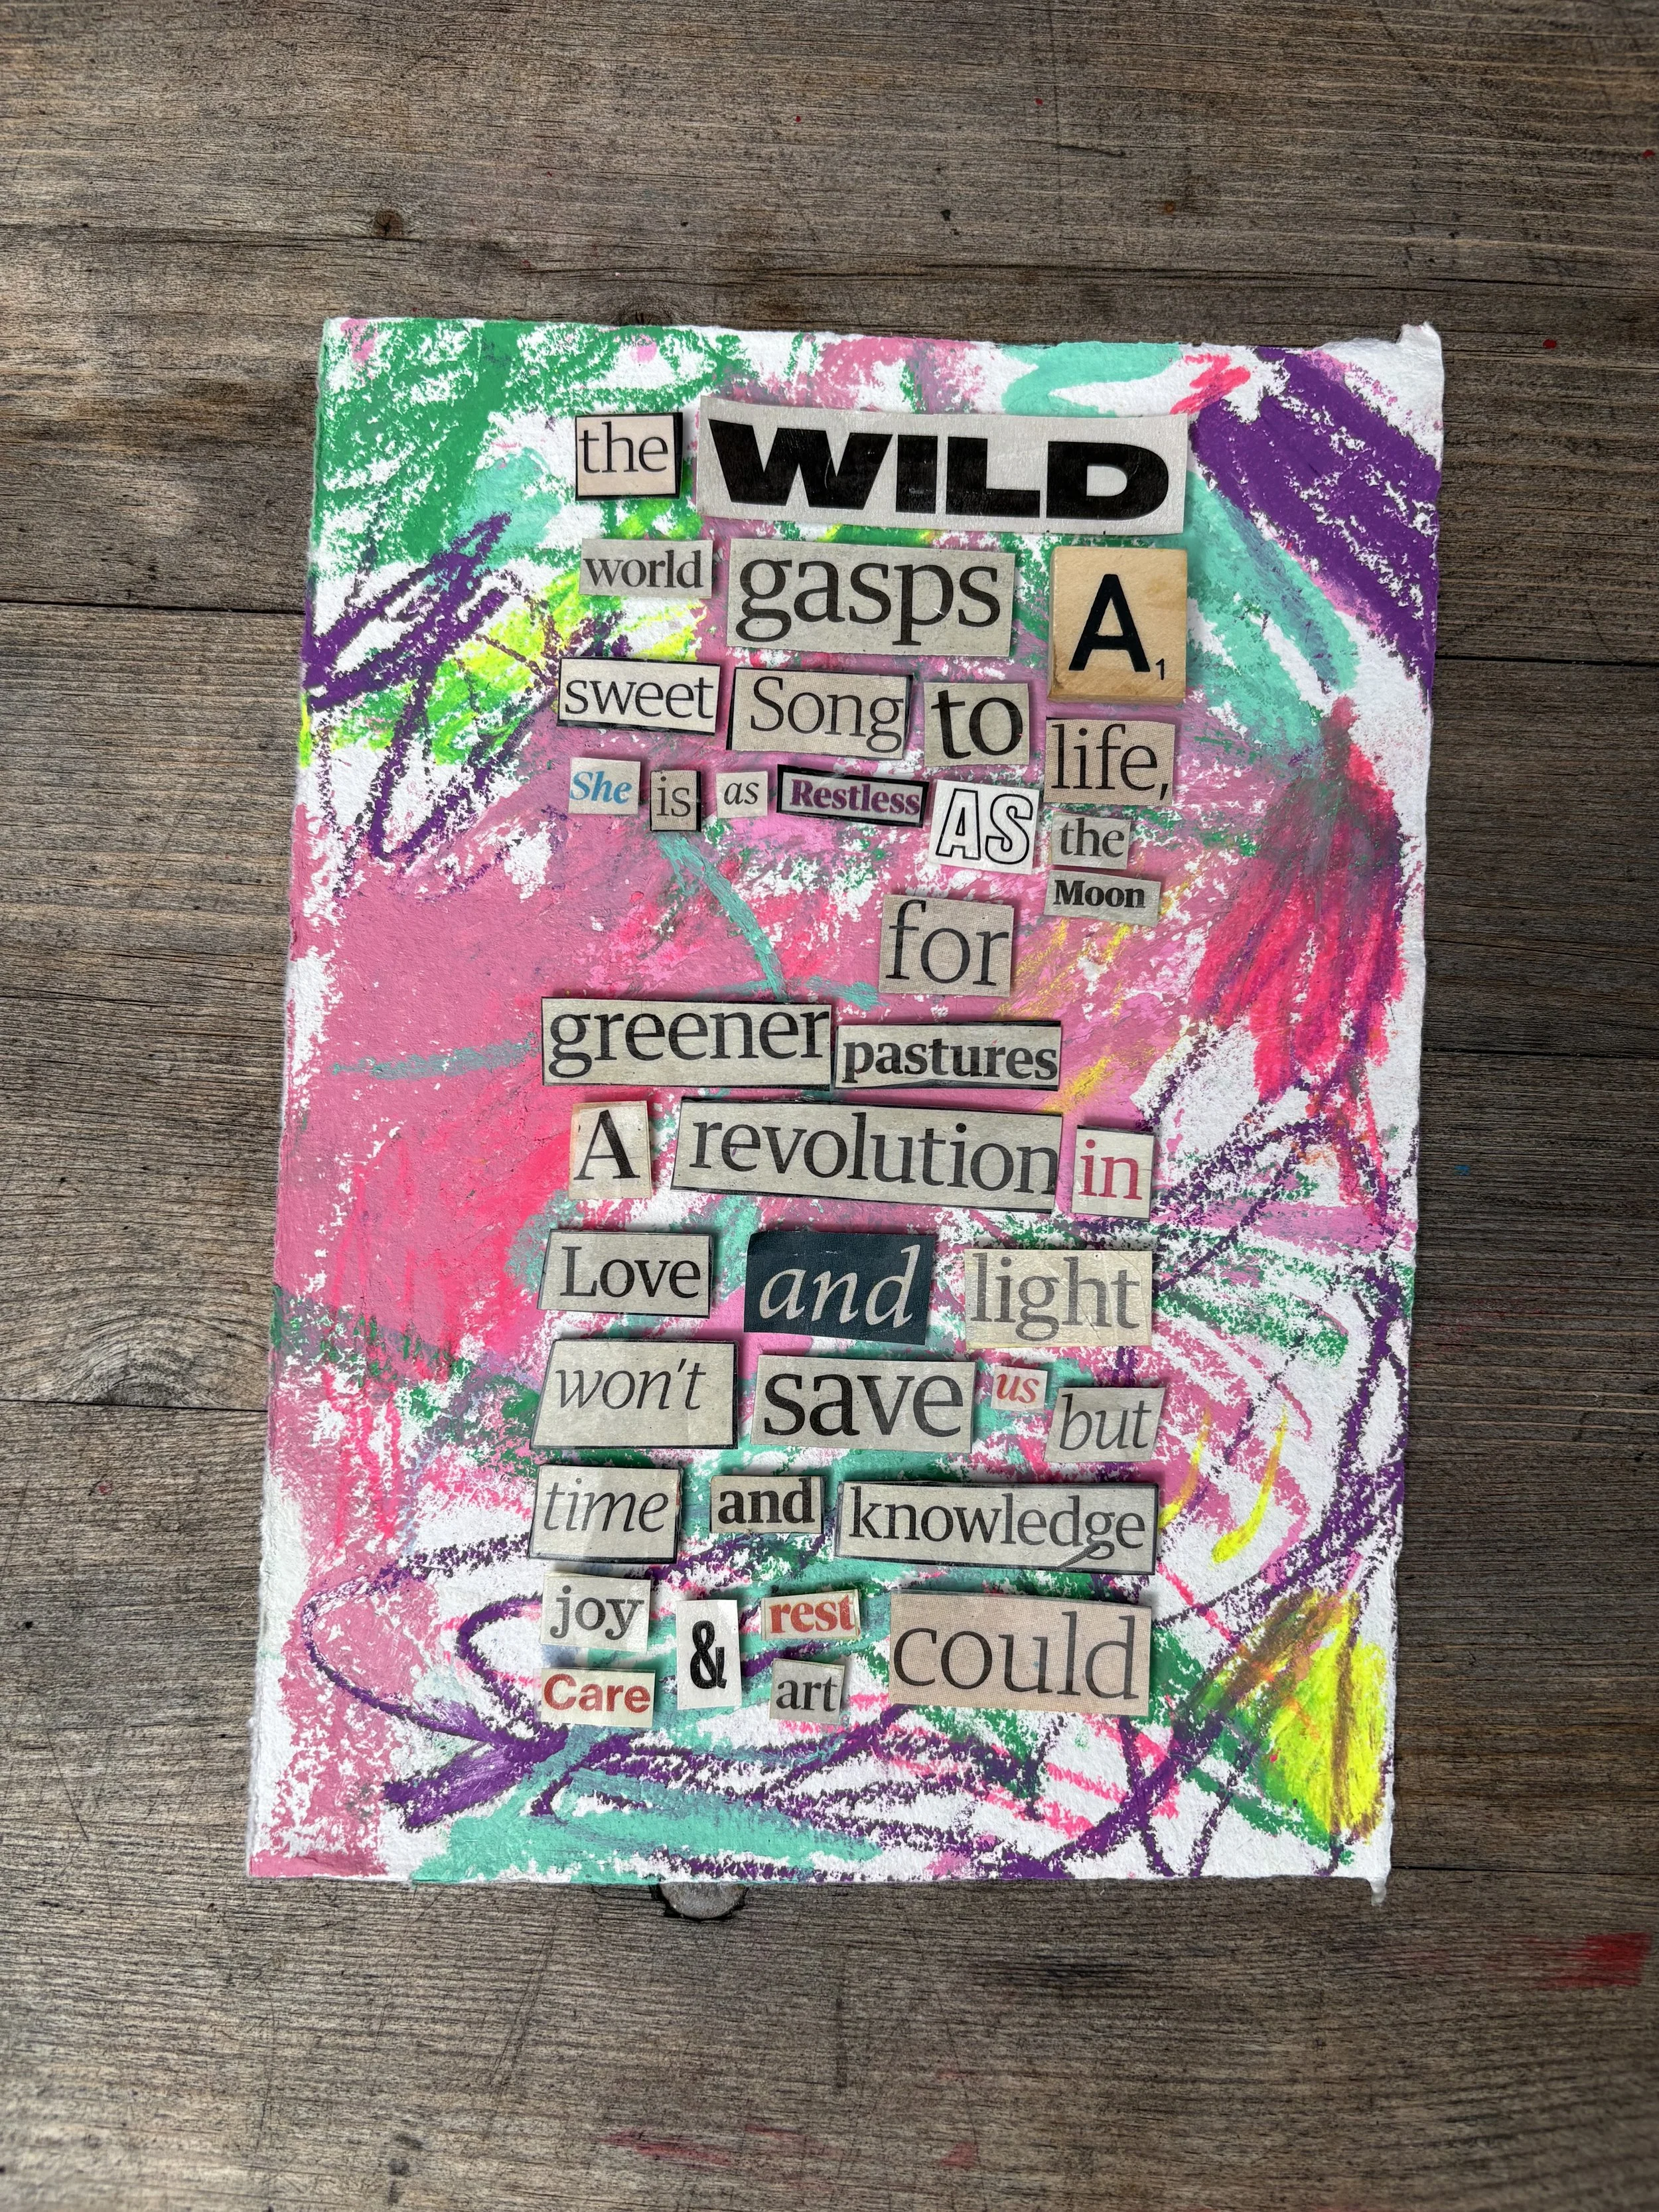 the WILD
world gasps A1
sweet Song to life,
She is as Restless AS the
Moon
for
greener pastures
A revolution in
Love and light
won't save us but
time and knowledge
joy & rest could
Care art